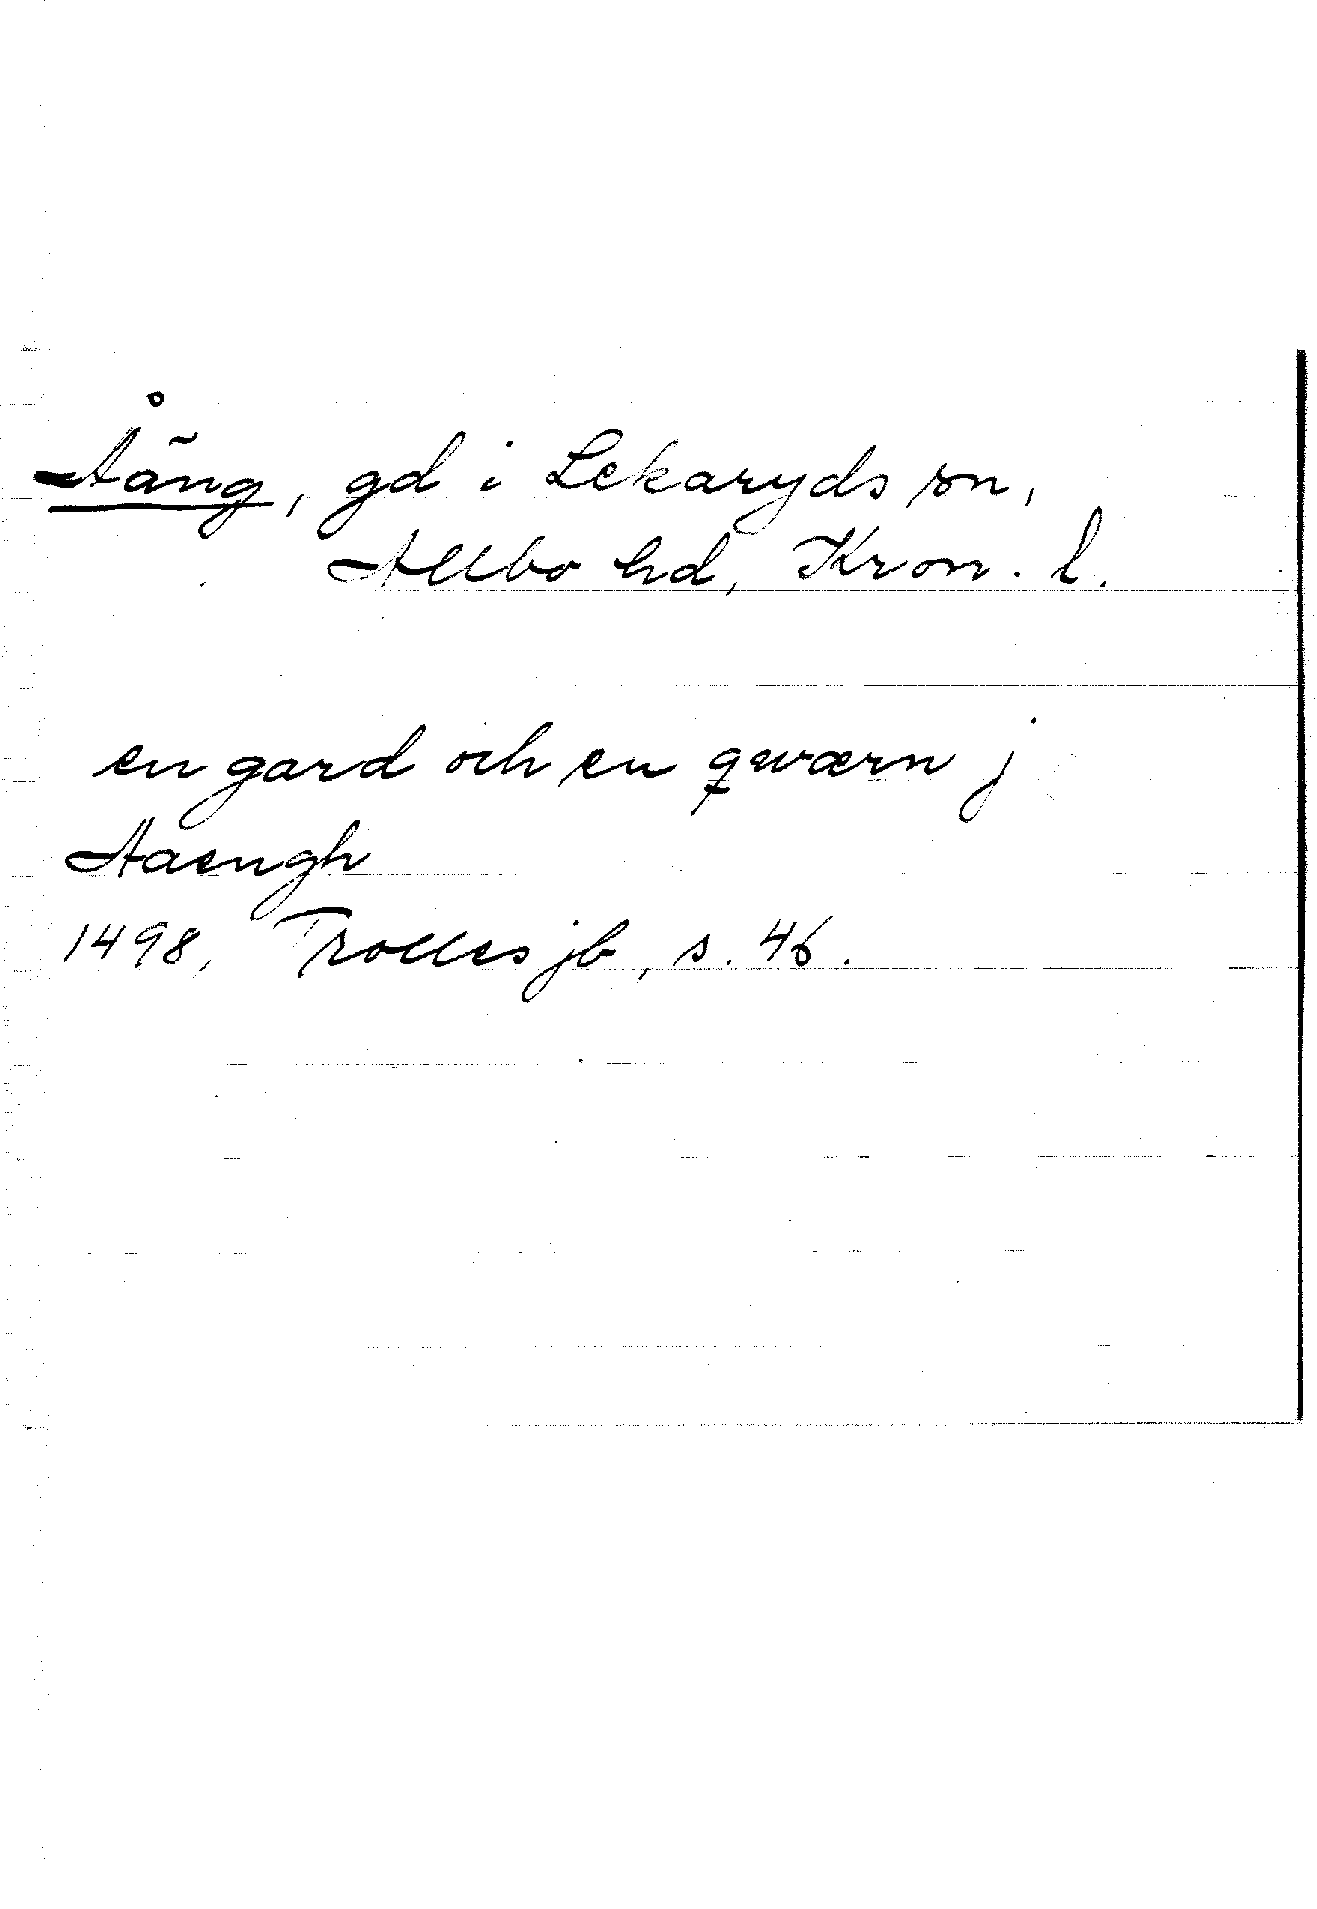 Åäng, gd i Lekaryds sn,
Allbo hd, Kron. l.
en gard och en qwærn j
Aaengh
1498, Trolles jb, s. 46.